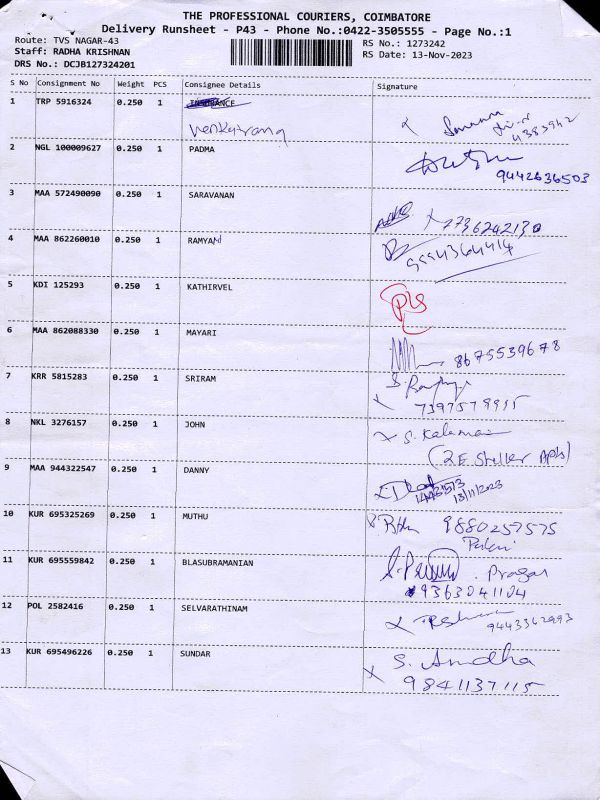 THE PROFESSIONAL COURIERS, COIMBATORE
Delivery Runsheet - P43 - Phone No.:0422-3505555 - Page No.:1
Route: TVS NAGAR-43 RS No.: 1273242
Staff: RADHA KRISHNAN RS Date: 13-Nov-2023
DRS No.: DCJB127324201
S No Consignment No Weight PCS Consignee Details Signature
1 TRP 5916324 0.250 1
4383942
2 NGL 100009627 0.250 1 PADMA
9442636503
3 MAA 572490090 0.250 1 SARAVANAN
7736242130
4 MAA 862260010 0.250 1 RAMYAN
9994364414
5 KDI 125293 0.250 1 KATHIRVEL
6 MAA 862088330 0.250 1 MAYARI
8675539678
7 KRR 5815283 0.250 1 SRIRAM
8 NKL 3276157 0.250 1 JOHN
(2E Steller Apts)
9 MAA 944322547 0.250 1 DANNY
13/11/2023
10 KUR 695325269 0.250 1 MUTHU 9880257575
11 KUR 695559842 0.250 1 BLASUBRAMANIAN
9363041104
12 POL 2582416 0.250 1 SELVARATHINAM
9443362993
13 KUR 695496226 0.250 1 SUNDAR S. Amdha
9841137115